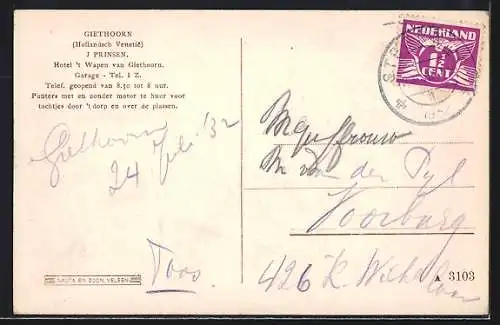 GIETHOORN
(Hollandsch Venetië)
J PRINSEN,
Hotel 't Wapen van Giethoorn.
Garage - Tel. 1 Z.
Telef. geopend van 8.30 tot 8 uur.
Punters met en zonder motor te huur voor
tochtjes door 't dorp en over de plassen.
NEDERLAND
1½
CENT
Giethoorn
24 Juli '32
Toos.
Mejuffrouw
M van der Pyl
Voorburg
426 K. Wilhel
NAUTA EN ZOON, VELSEN
A 3103